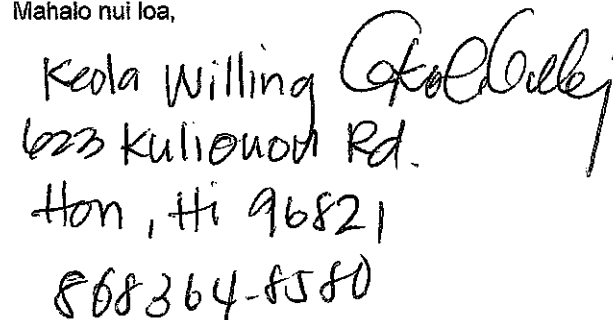 Mahalo nui loa,
Keola Willing
623 Kuliouou Rd.
Hon, Hi 96821
808 364-8580